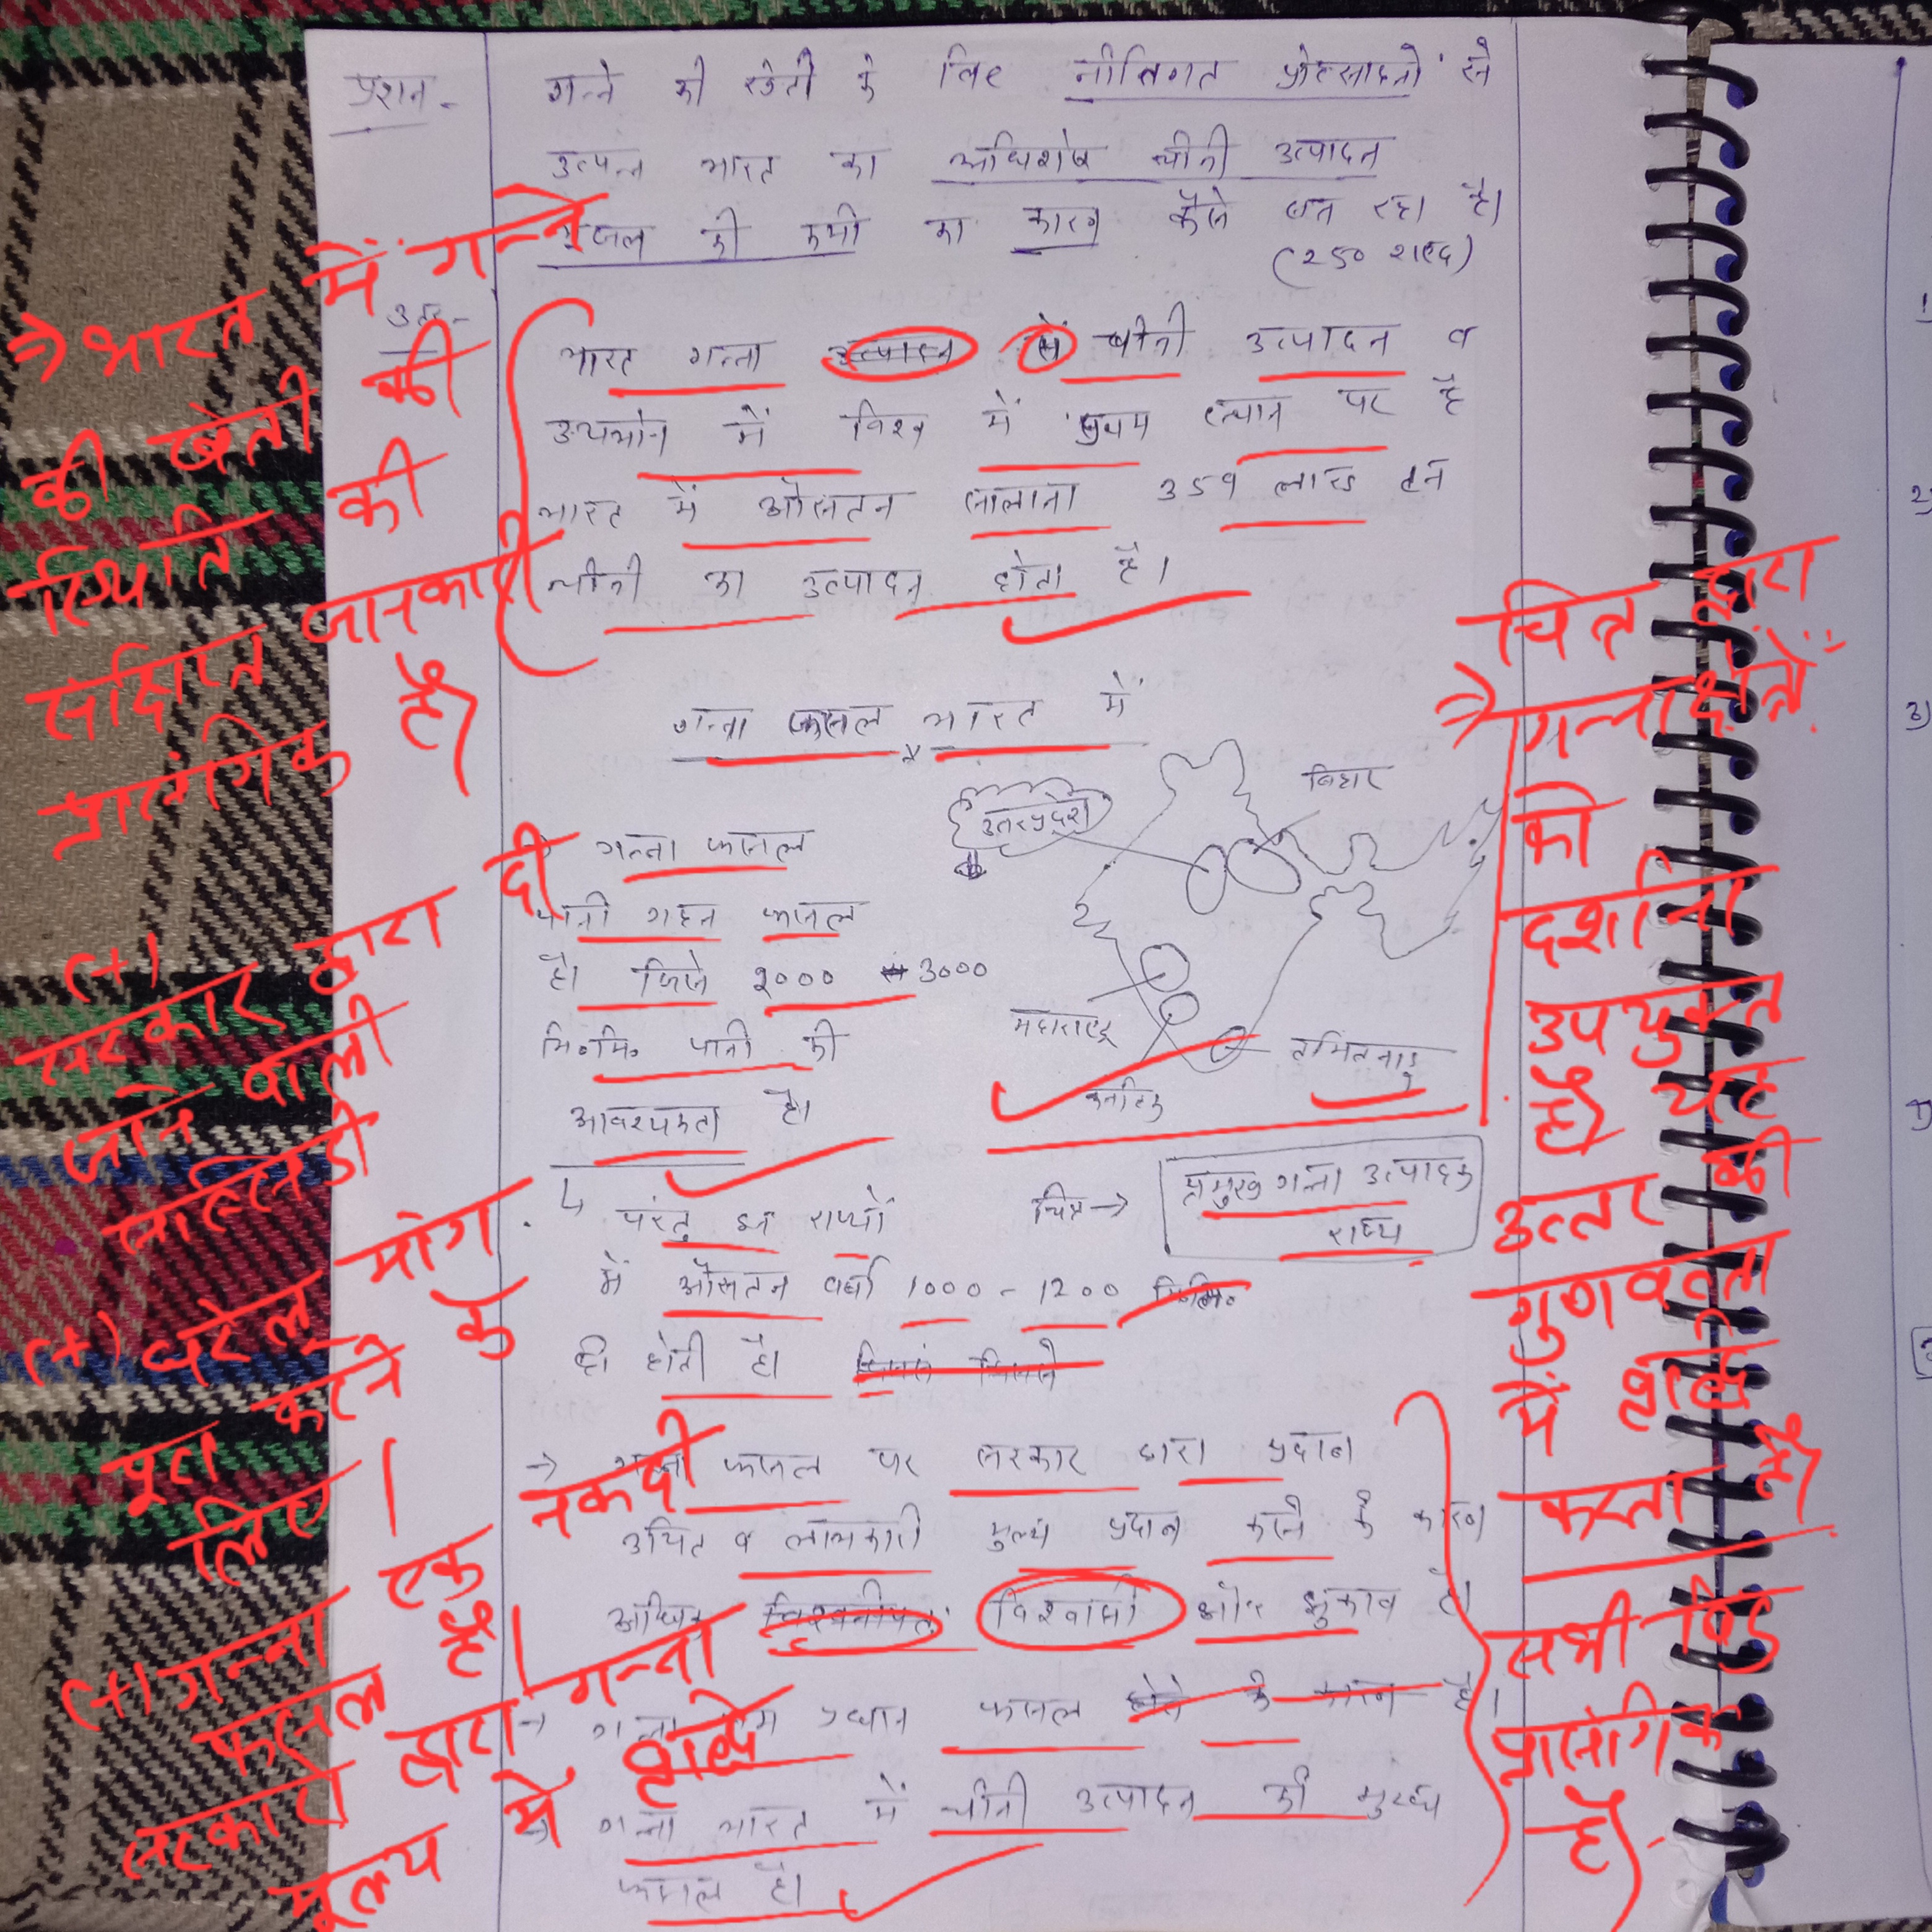 प्रशन- गन्ने की खेती के लिए नीतिगत प्रोत्साहनों से
उत्पन्न भारत का अधिशेष चीनी उत्पादन
भूजल की कमी का कारण कैसे बन रहा है।
(250 शब्द)
उत्तर-
भारत गन्ना उत्पादन से चीनी उत्पादन व
उपभोग में विश्व में प्रथम स्थान पर है
भारत में औसतन सालाना 359 लाख टन
चीनी का उत्पादन होता है।
गन्ना फसल भारत में
→ गन्ना फसल
पानी गहन फसल
है। जिसे 2000 3000
मि०मि० पानी की
आवश्यकता है।
उत्तरप्रदेश
बिहार
महाराष्ट्र
कर्नाटक
तमिलनाडु
चित्र→ प्रमुख गन्ना उत्पादक
राज्य
परंतु इन राज्यों
में औसतन वर्षा 1000 - 1200 मि०मि०
ही होती है।
→ गन्ना फसल पर सरकार द्वारा प्रदान
उचित व लाभकारी मुल्य प्रदान करने के कारण
अधिक विश्वासी और झुकाव है।
→ गन्ना श्रम प्रधान फसल होने के कारण है।
→ गन्ना भारत में चीनी उत्पादन की मुख्य
फसल है।
⇒ भारत में गन्ने
की खेती की
स्थिति की
संक्षिप्त जानकारी
प्रासंगिक है।
(+) सरकार द्वारा दी
जाने वाली
सब्सिडी
(+) घरेलू मांग
पूरा करने के
लिए।
(+) गन्ना एक नकदी
फसल है।
सरकारी द्वारा गन्ना
मूल्य में वृद्धि
⇒ चित्र द्वारा
गन्ना क्षेत्रों
को
दर्शाना
उपयुक्त
है। यह
उत्तर की
गुणवत्ता
में वृद्धि
करता है।
सभी बिंदु
प्रासंगिक
है।
1)
2)
3)